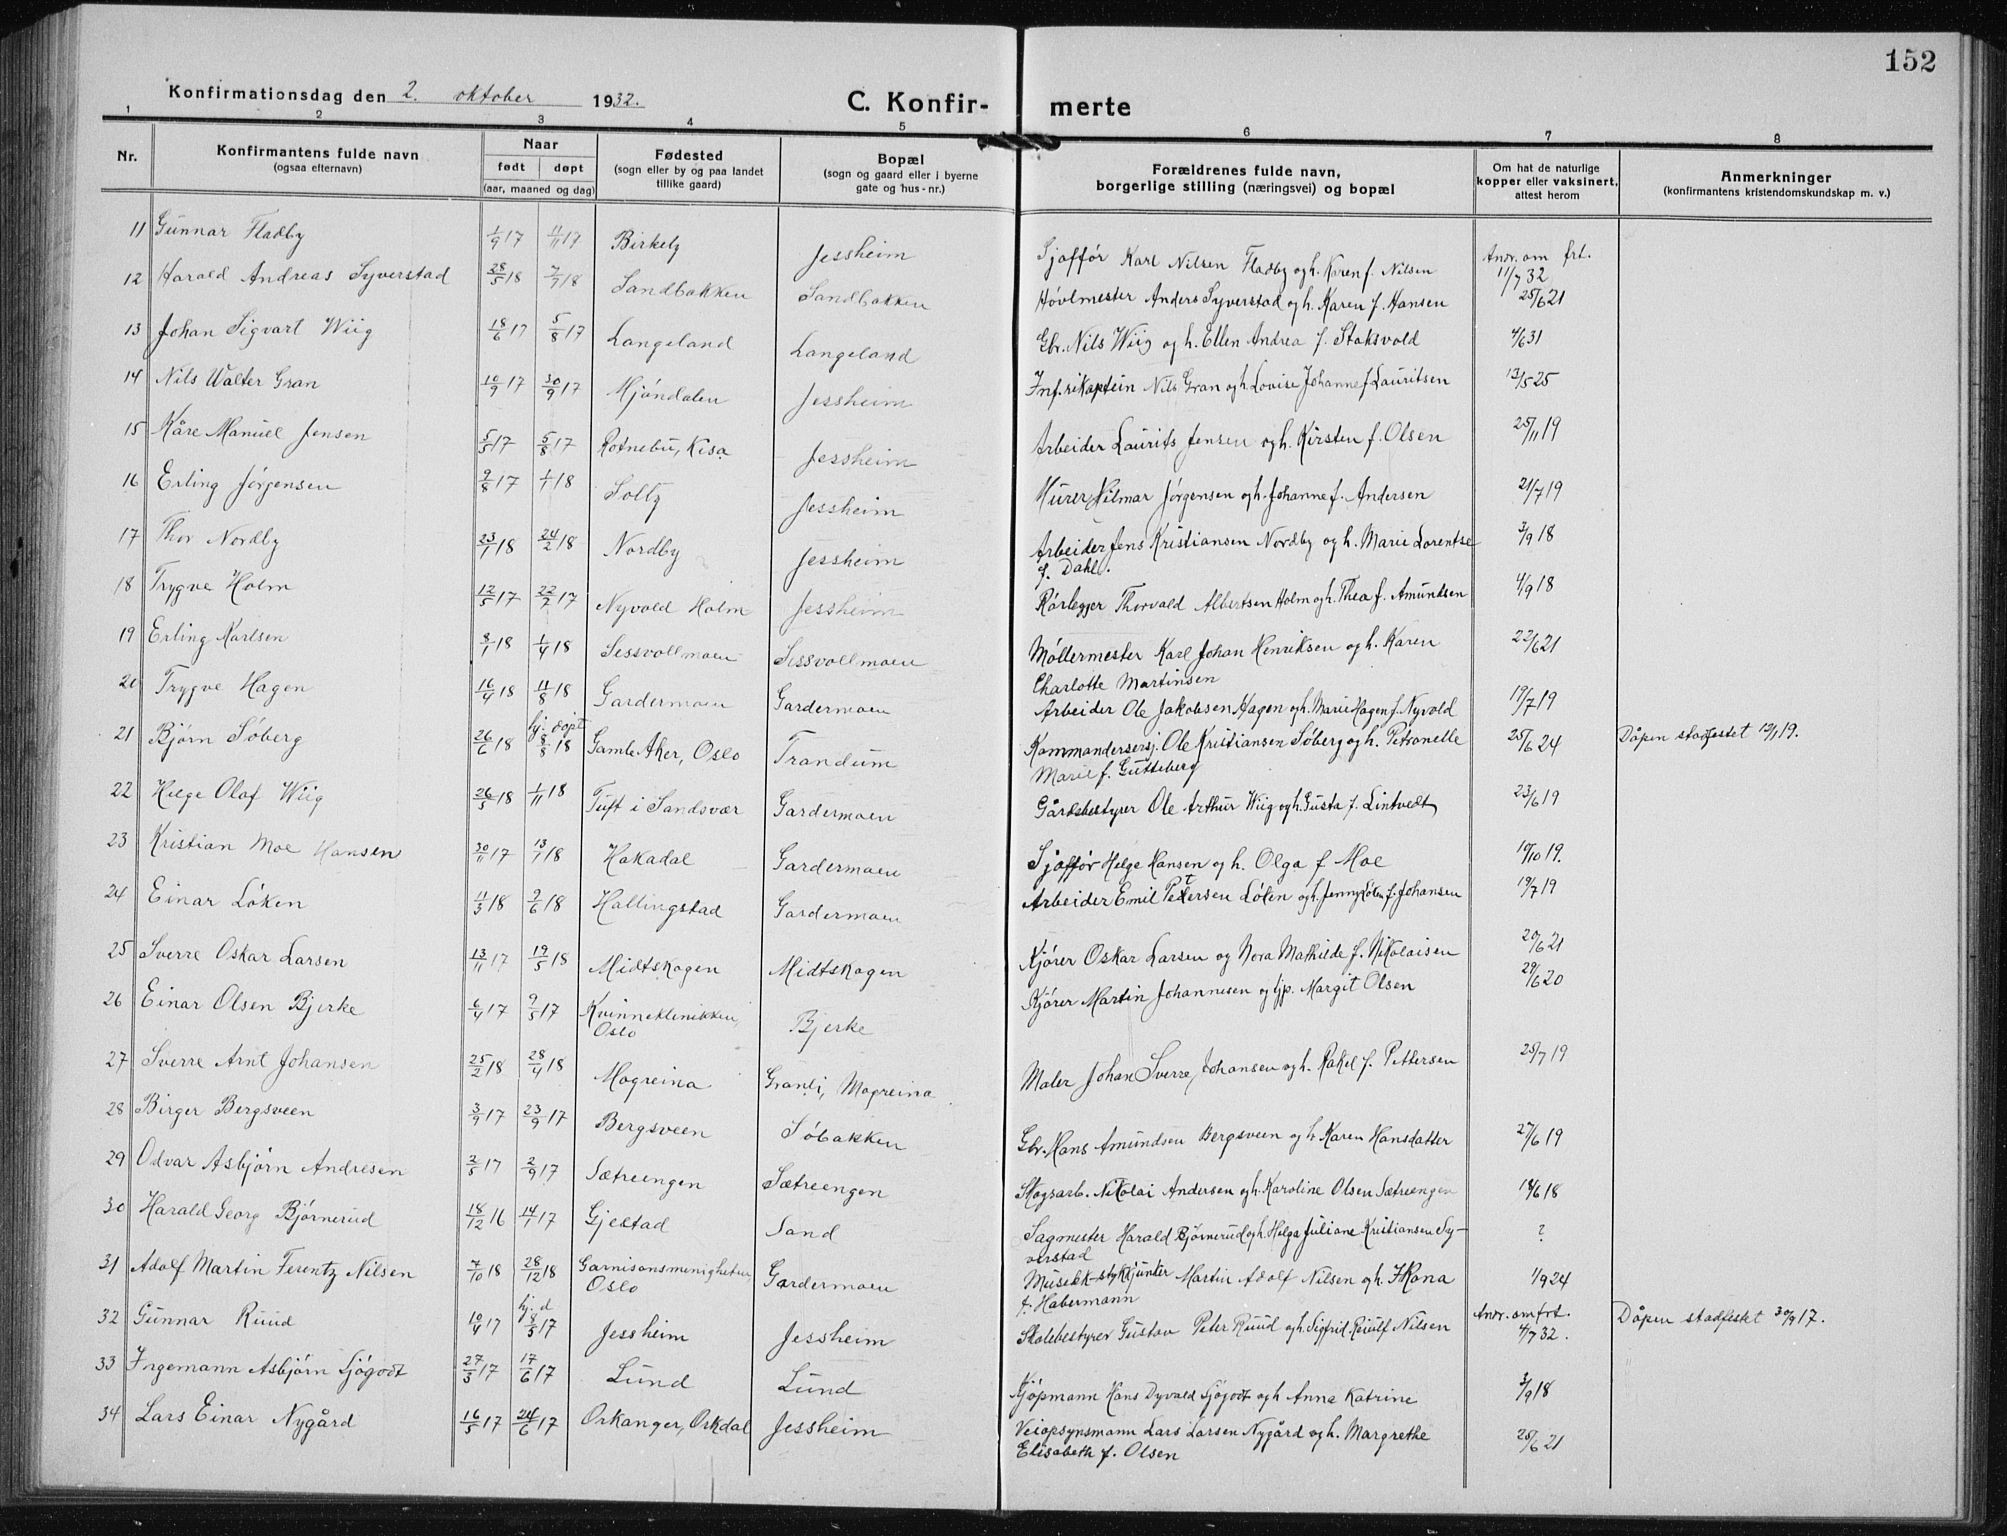 152
Konfirmationsdag den 2. oktober 1932.
C. Konfir- merte
1 2 3 4 5 6 7 8
Nr.
Konfirmantens fulde navn
(ogsaa efternavn)
Naar
født døpt
(aar, maaned og dag)
Fødested
(sogn eller by og paa landet
tillike gaard)
Bopæl
(sogn og gaard eller i byerne
gate og hus-nr.)
Forældrenes fulde navn,
borgerlige stilling (næringsvei) og bopæl
Om hat de naturlige
kopper eller vaksinert,
attest herom
Anmerkninger
(konfirmantens kristendomskundskap m. v.)
11 Gunnar Fladby 1/9 17 11/11 17 Birkely Jessheim Sjaffør Karl Nilsen Fladby og h. Karen f. Nilsen Andr. om frt. 11/7 32
12 Harald Andreas Syverstad 28/5 18 7/7 18 Sandbakken Sandbakken Høvlmester Anders Syverstad og h. Karen f. Hansen 25/6 21
13 Johan Sigvart Wiig 18/6 17 5/8 17 Langeland Langeland Gbr. Nils Wiig og h. Ellen Andrea f. Stoksvold 4/6 31
14 Nils Walter Gran 10/9 17 30/9 17 Mjøndalen Jessheim Inf.rikaptein Nils Gran og h. Lovise Johanne f. Lauritsen 13/5 25
15 Kåre Manuel Jensen 5/5 17 5/8 17 Rotnebu, Kisa Jessheim Arbeider Laurits Jensen og h. Kirsten f. Olsen 25/11 19
16 Erling Jørgensen 9/8 17 1/1 18 Solty Jessheim Murer Hilmar Jørgensen og h. Johanne f. Andersen 21/7 19
17 Thor Nordby 23/1 18 24/2 18 Nordby Jessheim Arbeider Jens Kristiansen Nordby og h. Marie Lorentse
f. Dahl. 3/9 18
18 Trygve Holm 12/5 17 22/7 17 Nyvold Holm Jessheim Rørlegjer Thorvald Albertsen Holm og h. Thea f. Amundsen 4/9 18
19 Erling Karlsen 8/1 18 1/4 18 Sessvollmoen Sessvollmoen Møllermester Karl Johan Henriksen og h. Karen
Charlotte Martinsen 22/6 21
20 Trygve Hagen 16/4 18 11/8 18 Gardermoen Gardermoen Arbeider Ole Jakobsen Hagen og h. Marie Hagen f. Nyvold 19/7 19
21 Bjørn Søberg 26/6 18 hj. døpt 8/8 18 Gamle Aker, Oslo Trandum Kommandersersj. Ole Kristiansen Søberg og h. Petronelle
Marie f. Gutteberg 25/6 24 Dåpen stadfestet 12/1 19.
22 Helge Olaf Wiig 26/5 18 1/11 18 Tuft i Sandsvær Gardermoen Gårdsbestyrer Ole Arthur Wiig og h. Gusta f. Lintvedt 23/6 19
23 Kristian Moe Hansen 30/11 17 13/1 18 Hakadal Gardermoen Sjaffør Helge Hansen og h. Olga f Moe 10/10 19.
24 Einar Løken 11/3 18 2/6 18 Hallingstad Gardermoen Arbeider Emil Petersen Løken og h. Jenny Løken f. Johansen 19/7 19
25 Sverre Oskar Larsen 13/11 17 19/5 18 Midtskogen Midtskogen Kjører Oskar Larsen og Nora Mathilde f. Nikolaisen 20/6 21
26 Einar Olsen Bjerke 6/4 17 9/5 17 Kvinneklinikken,
Oslo Bjerke Kjører Martin Johannesen og pp. Margit Olsen 29/6 20
27 Sverre Arnt Johansen 25/2 18 28/4 18 Mogreina Granli, Mogreina Maler Johan Sverre Johansen og h. Rakel f. Pettersen 25/7 19
28 Birger Bergsveen 3/9 17 23/9 17 Bergsveen Søbakken Gbr. Hans Amundsen Bergsveen og h Karen Hansdatter 27/6 19
29 Odvar Asbjørn Andresen 2/5 17 2/9 17 Sætreengen Sætreengen Skogsarb. Nikolai Andersen og h. Karoline Olsen Sætreengen 18/6 18
30 Harald Georg Bjørnerud 18/12 16 14/1 17 Gjestad Sand Sagmester Harald Bjørnerud og h. Helga Juliane Kristiansen Sy-
verstad ?
31 Adolf Martin Ferentz Nilsen 7/10 18 28/12 18 Garnisonsmenigheten,
Oslo Gardermoen Musikk-stykkjunker Martin Adolf Nilsen og h.
f. Habermann 1/9 24
32 Gunnar Ruud 10/4 17 hj. d 8/5 17 Jessheim Jessheim Skolebestyrer Gustav Peter Ruud og h. Sigfrid Reiulf Nilsen Andr. om frt. 4/7 32. Dåpen stadfestet 30/9 17.
33 Ingemann Asbjørn Sjøgodt 27/3 17 17/6 17 Lund Lund Kjøpmann Hans Dyvald Sjøgodt og h Anna Katrine 3/9 18
34 Lars Einar Nygård 16/5 17 24/6 17 Orkanger, Orkdal Jessheim Veiopsynsmann Lars Larsen Nygård og h. Margrethe
Elisabeth f. Olsen 25/6 21